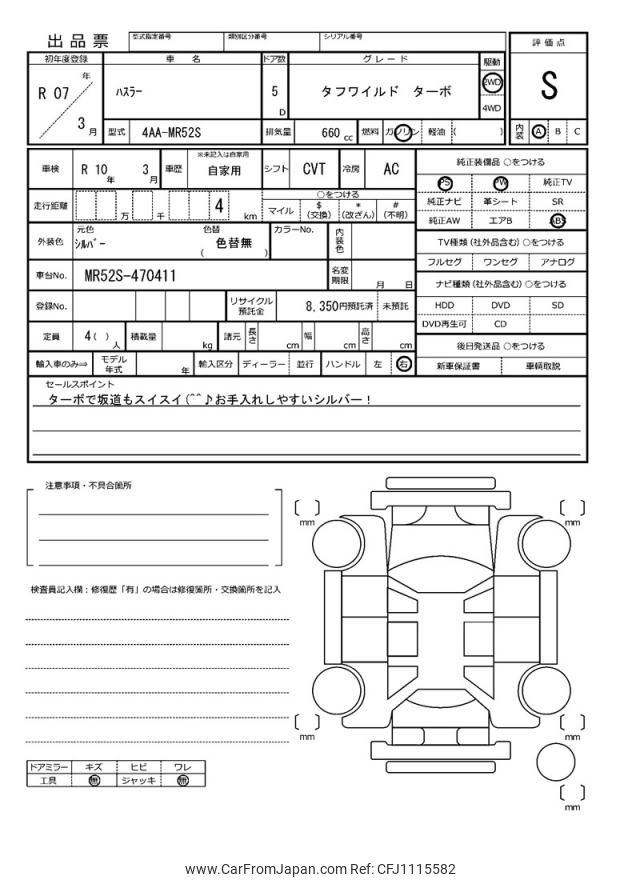 出品票
型式指定番号 類別区分番号 シリアル番号
初年度登録 車名 ドア数 グレード 駆動 評価点
R 07 年 3 月
ﾊｽﾗｰ
5 D
タフワイルド ターボ
2WD
4WD
S
型式 4AA-MR52S 排気量 660 cc 燃料 ガソリン 軽油 ( )
内装 A B C
車検 R 10 年 3 月 車歴 ※未記入は自家用 自家用 シフト CVT 冷房 AC
純正装備品 ○をつける
PS PW 純正TV
純正ナビ 革シート SR
純正AW エアB ABS
走行距離 万 千 4 km
○をつける
マイル $(交換) *(改ざん) #(不明)
外装色 元色 ｼﾙﾊﾞｰ 色替 ( 色替無 ) カラーNo. 内装色
TV種類 (社外品含む) ○をつける
フルセグ ワンセグ アナログ
車台No. MR52S-470411 名変期限 月 日
ナビ種類 (社外品含む) ○をつける
HDD DVD SD
DVD再生可 CD
登録No. リサイクル預託金 8,350円預託済 未預託
定員 4( ) 人 積載量 kg 諸元 長さ cm 幅 cm 高さ cm
後日発送品 ○をつける
新車保証書 車輌取説
輸入車のみ⇒ モデル年式 年 輸入区分 ディーラー 並行 ハンドル 左 右
セールスポイント
ターボで坂道もスイスイ(^^♪お手入れしやすいシルバー！
注意事項・不具合箇所
検査員記入欄：修復歴「有」の場合は修復箇所・交換箇所を記入
mm
mm
mm
mm
mm
ドアミラー キズ ヒビ ワレ
工具 無 ジャッキ 無
www.CarFromJapan.com Ref: CFJ1115582